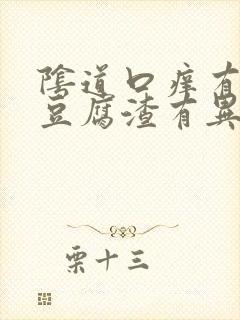 陰道口痒有
豆腐渣有異
栗十三